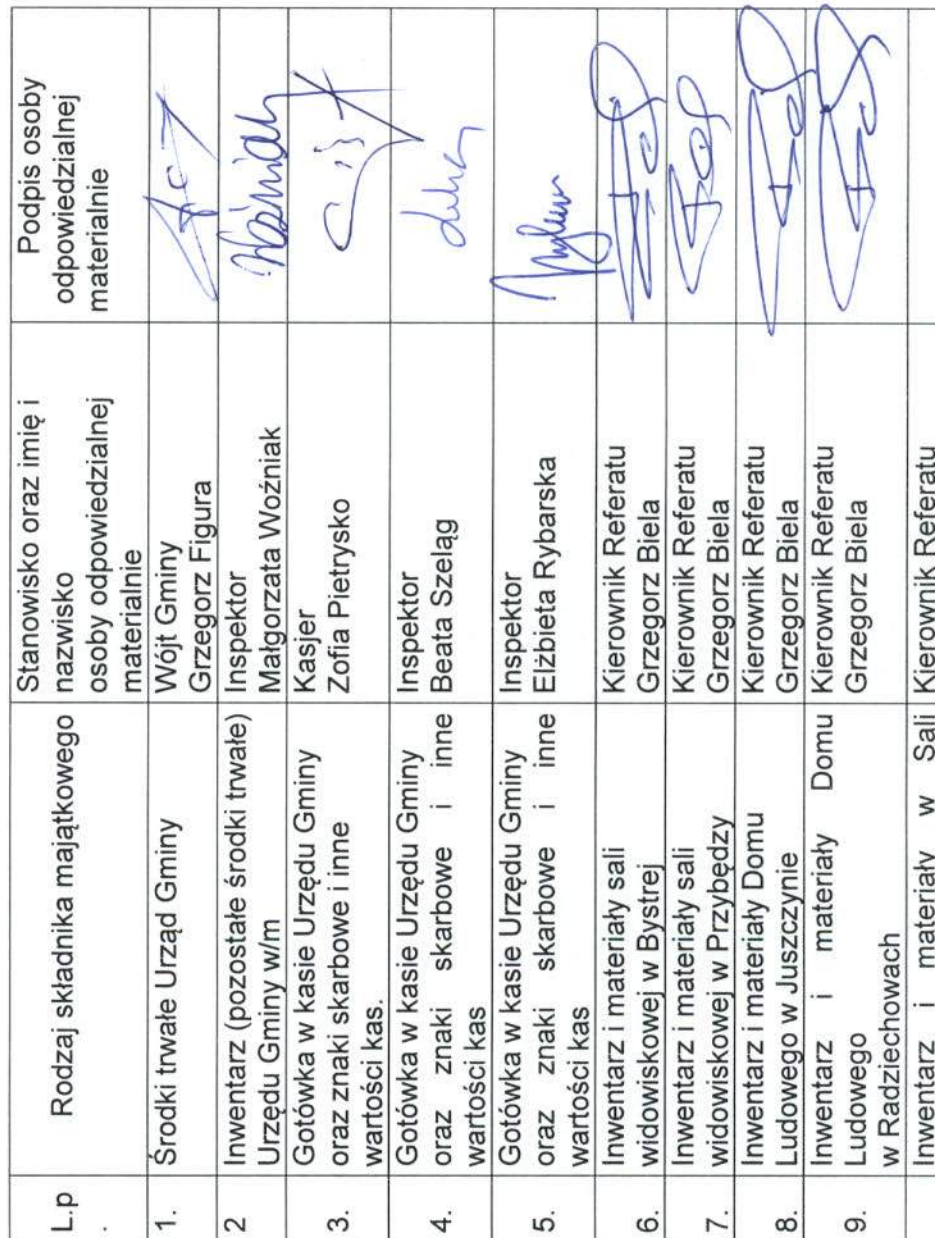 L.p
.
Rodzaj składnika majątkowego
Stanowisko oraz imię i
nazwisko
osoby odpowiedzialnej
materialnie
Podpis osoby
odpowiedzialnej
materialnie
1.
Środki trwałe Urząd Gminy
Wójt Gminy
Grzegorz Figura
2
Inwentarz (pozostałe środki trwałe)
Urzędu Gminy w/m
Inspektor
Małgorzata Woźniak
Woźniak
3.
Gotówka w kasie Urzędu Gminy
oraz znaki skarbowe i inne
wartości kas.
Kasjer
Zofia Pietrysko
4.
Gotówka w kasie Urzędu Gminy
oraz znaki skarbowe i inne
wartości kas
Inspektor
Beata Szeląg
5.
Gotówka w kasie Urzędu Gminy
oraz znaki skarbowe i inne
wartości kas
Inspektor
Elżbieta Rybarska
6.
Inwentarz i materiały sali
widowiskowej w Bystrej
Kierownik Referatu
Grzegorz Biela
7.
Inwentarz i materiały sali
widowiskowej w Przybędzy
Kierownik Referatu
Grzegorz Biela
8.
Inwentarz i materiały Domu
Ludowego w Juszczynie
Kierownik Referatu
Grzegorz Biela
9.
Inwentarz i materiały Domu
Ludowego
w Radziechowach
Kierownik Referatu
Grzegorz Biela
Inwentarz i materiały w Sali
Kierownik Referatu